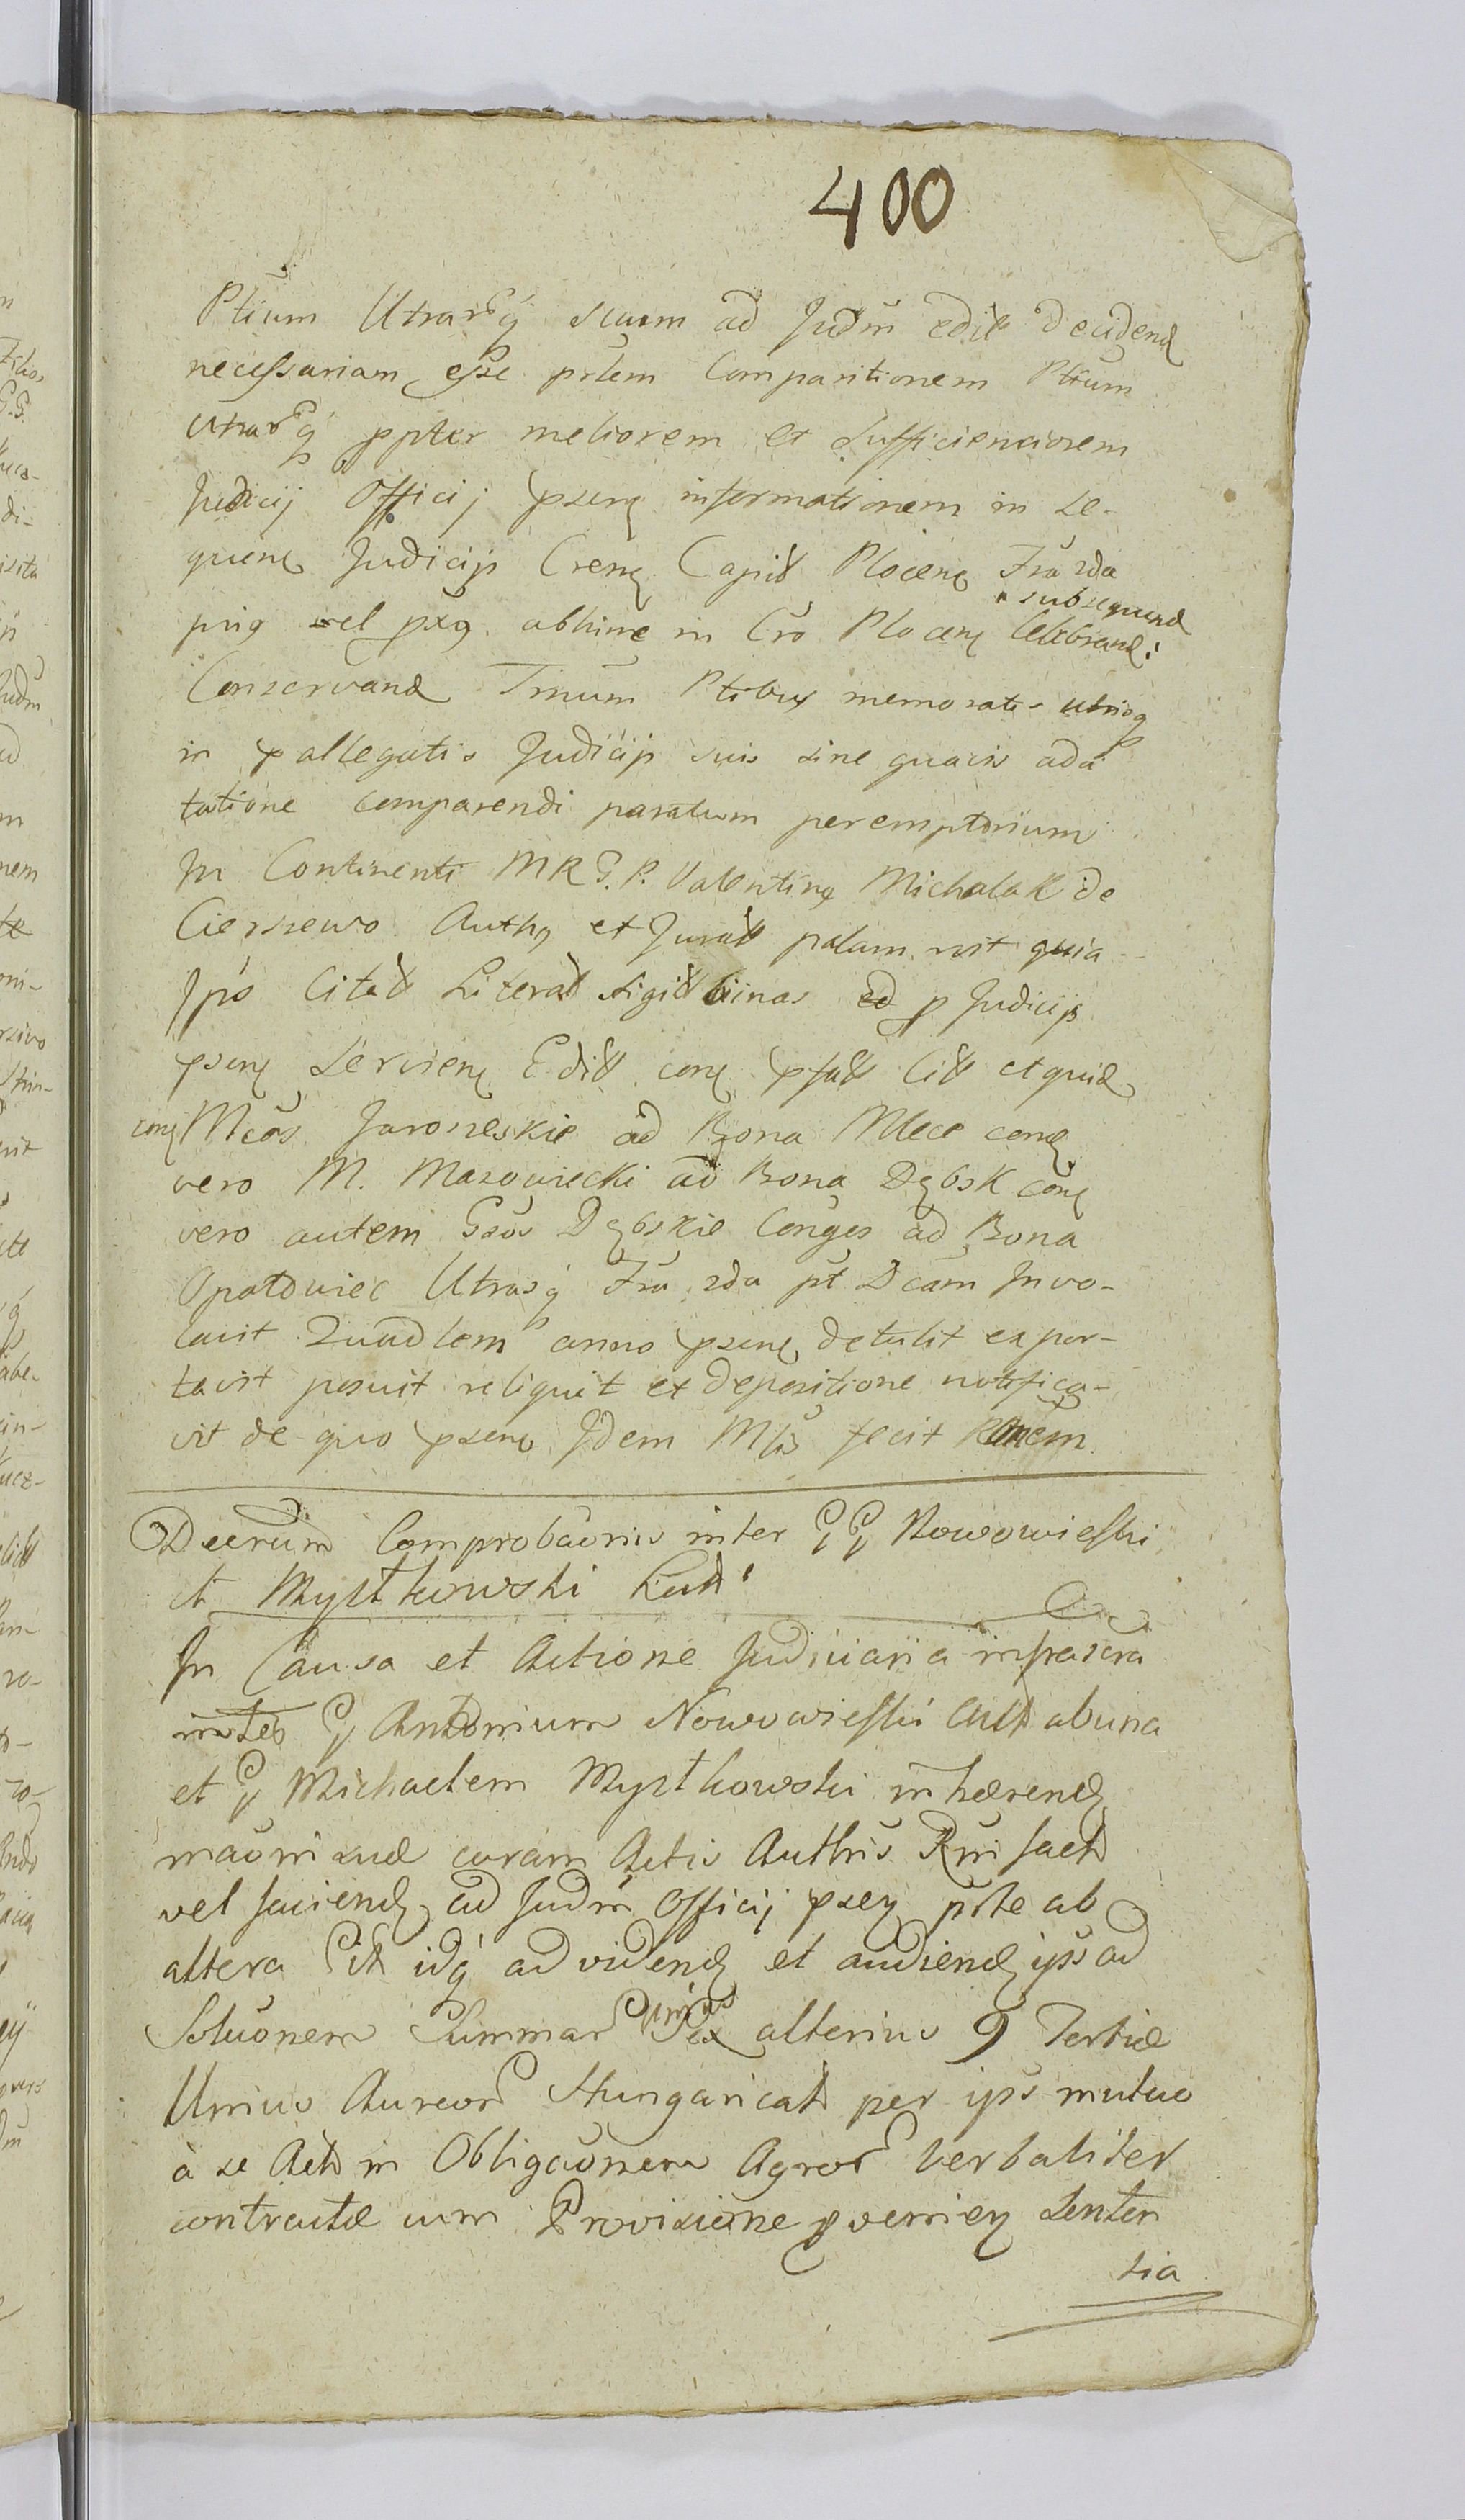 400
Ptium Utrarq suum ad Judm edit decidend
necessariam esse prtem Comparitionem Ptium
utrarq ppter meliorem et sufficienciorem
Judicij Officij psenq informationem in se-
quenq Judicijs Crenq Capit Plocenq Fra 2da
subsequend
prig vel pxg abhinc in Cro Plocenq Celebrand:
Conservand Tmum Ptibus memorats utriq
in pallegatis Judicijs suis sine quavis ada
tatione comparendi paratum peremptorium
In Continenti MRG.P. Valentinq Michalak de
Cierszewo Authq et Jurat palam rvit quia
Ips Citat Literat sigit binas ad p Judicijs
psenq Servienq Edit conq psat Cit et quid
conq Mcos Jaroneskie ad Bona Mlece conq
vero M. Mazowiecki ad Bona Dębsk conq
vero autem Gsos Dębskie Conges ad Bona
Opatowiec Utrasq Fra 2da pt Dcam Invo-
cavit Quadlem anno psenq detulit expor-
tavit posuit reliquit et depositione notifica-
vit de quo psenq Idem Mis fecit Ronem.
Decrum Comprobaonis inter GG Nowowieski
et Mystkowski Lat
In Causa et Actione Judiciaria infrascra
inter G Antonium Nowowieski Act ab una
et G Michaelem Mystkowski inhærend
maoni suæ coram Actis Authis Rmi fact
vel faciend ad Judm Officij psey prte ab
altera Cit idq ad vidend et audiend ips ad
Soluonem Summar unius Sex alterius 9 Tertiæ
Unius Aureor Hungaricat per ips mutuo
a se Act in Obligaonem Agror verbaliter
contractæ cum Provisione pveniey Senten
tia